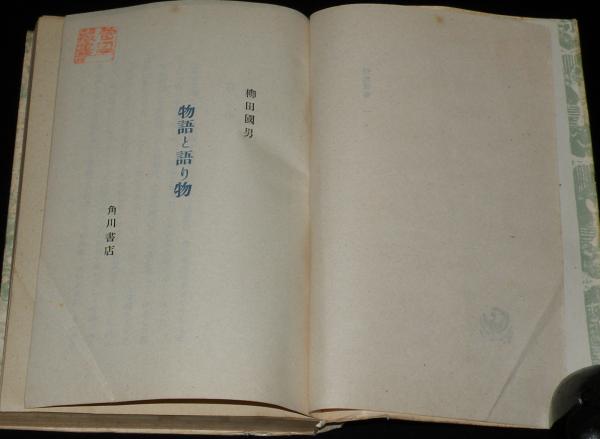 柳田國男
物語と語り物
角川書店